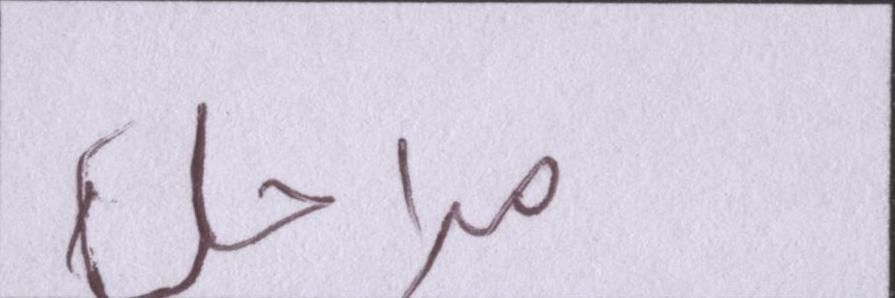 مراحل